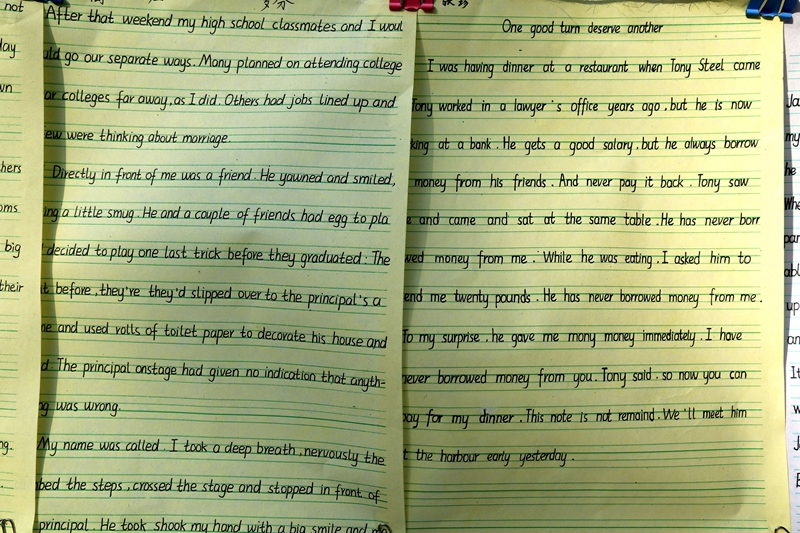 not
day
wn
hers
oms
big
their
ng.
After that weekend my high school classmates and I woul
uld go our separate ways. Many planned on attending college
or colleges far away, as I did. Others had jobs lined up and
ew were thinking about marriage.
Directly in front of me was a friend. He yawned and smiled,
ing a little smug. He and a couple of friends had egg to pla
decided to play one last trick before they graduated: The
t before, they're they'd slipped over to the principal's a
me and used rolls of toilet paper to decorate his house and
d. The principal onstage had given no indication that anyth-
g was wrong.
My name was called. I took a deep breath, nervously the
bed the steps, crossed the stage and stopped in front of
principal. He took shook my hand with a big smile and
One good turn deserve another
I was having dinner at a restaurant when Tony Steel came
Tony worked in a lawyer's office years ago, but he is now
king at a bank. He gets a good salary, but he always borrow
money from his friends. And never pay it back. Tony saw
e and came and sat at the same table. He has never borr
wed money from me. While he was eating. I asked him to
end me twenty pounds. He has never borrowed money from me.
To my surprise, he gave me mony money immediately. I have
never borrowed money from you. Tony said. so now you can
pay for my dinner. This note is not remaind. We'll meet him
t the harbour early yesterday.
Ja
my
he
Whe
par
abl
up
an
It
w
J
E